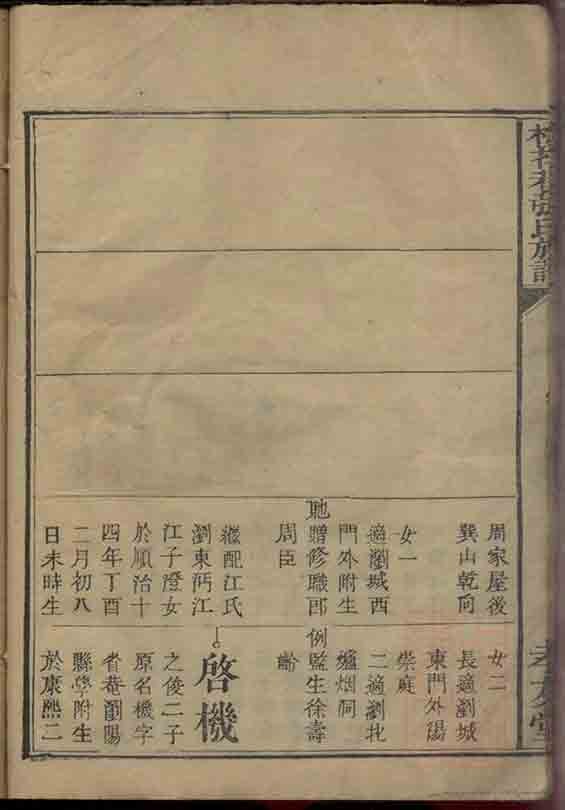 張氏族譜
孝友堂
周家屋後
巽山乾向
女一
適瀏城西
門外附生
貤贈修職郎
周臣
繼配江氏
瀏東沔江
江子澄女
於順治十
四年丁酉
二月初八
日未時生
女二
長適瀏城
東門外湯
崇庭
二適瀏北
爐烟洞
例監生徐壽
齡
啓機
之俊二子
原名機字
省菴瀏陽
縣學附生
於康熙二